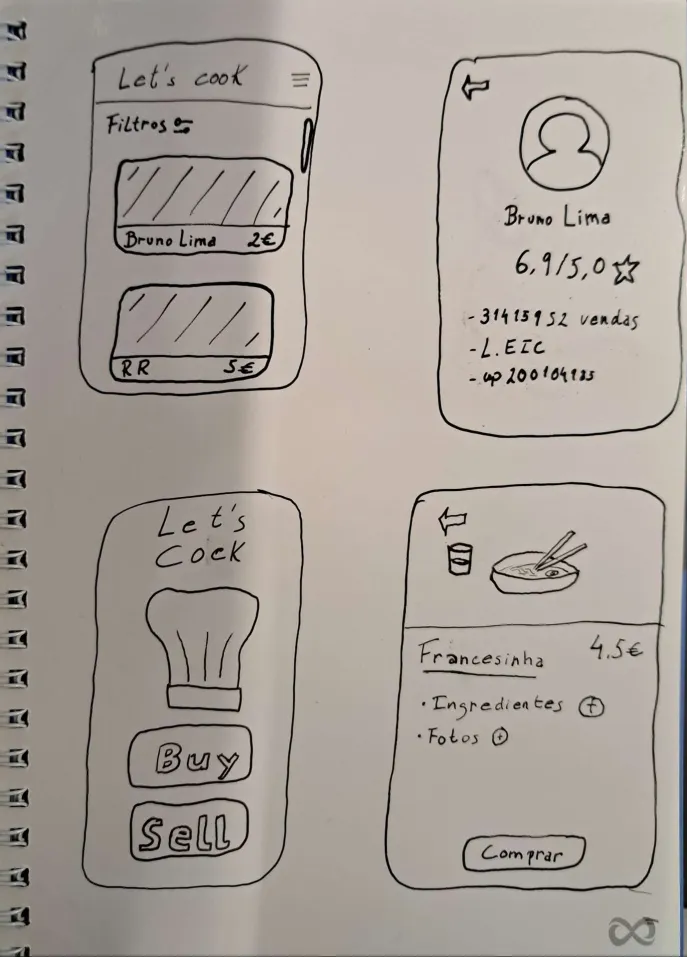 Let's cook
Filtros
Bruno Lima 2€
RR 5€
Bruno Lima
6,9/5,0
- 31415952 vendas
- L.EIC
- up200104185
Let's
Cook
Buy
Sell
Francesinha 4.5€
• Ingredientes +
• Fotos +
Comprar